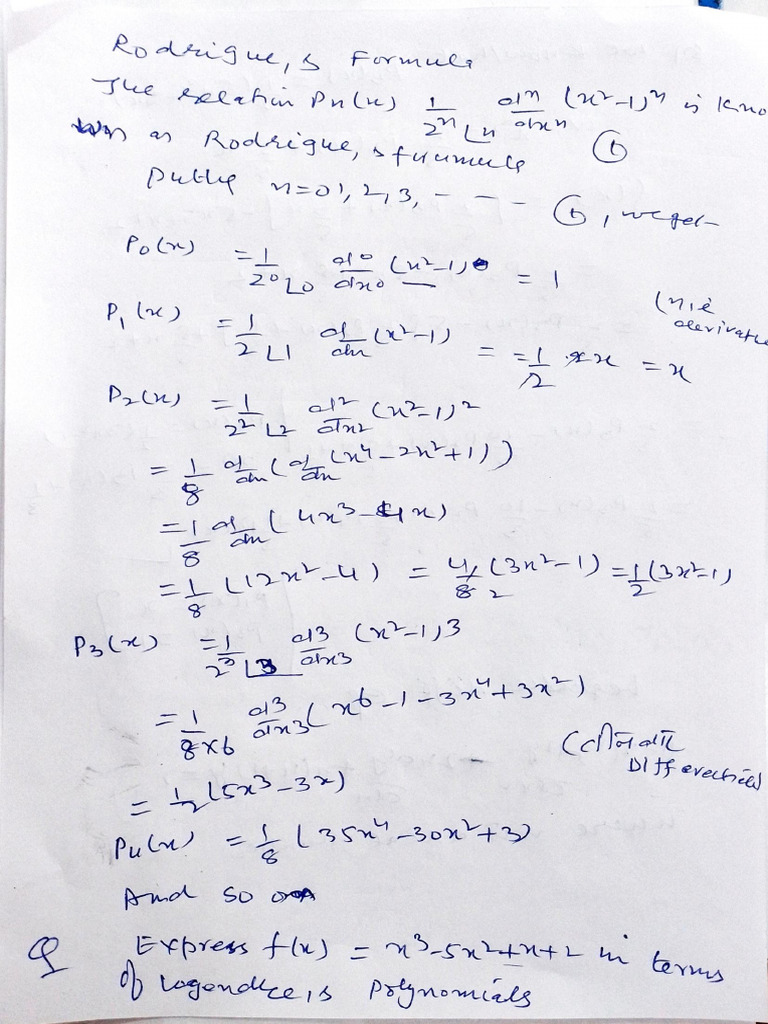 Rodrigue,s Formula
The relation Pn(x) 1/2ⁿ ∟n dⁿ/dxⁿ (x²-1)ⁿ is kno
wn as Rodrigue,s fuumula ①
Putting n=0,1,2,3, - - - - ①, we get
P₀(x) = 1/2⁰∟0 d⁰/dx⁰ (x²-1)⁰ = 1
P₁(x) = 1/2∟1 d/dx (x²-1) = = 1/2 · 2x = x
P₂(x) = 1/2²∟2 d²/dx² (x²-1)²
= 1/8 d/dx (d/dx (x⁴-2x²+1))
= 1/8 d/dx (4x³-4x)
= 1/8 (12x²-4) = 4/8 (3x²-1) = 1/2 (3x²-1)
P₃(x) = 1/2³∟3 d³/dx³ (x²-1)3
= 1/8x6 d³/dx³ (x⁶-1-3x⁴+3x²)
(तीन बार
Differential)
= 1/2 (5x³-3x)
P₄(x) = 1/8 (35x⁴-30x²+3)
And so on
Q Express f(x) = x³-5x²+x+2 in terms
of Legendre,s Polynomials